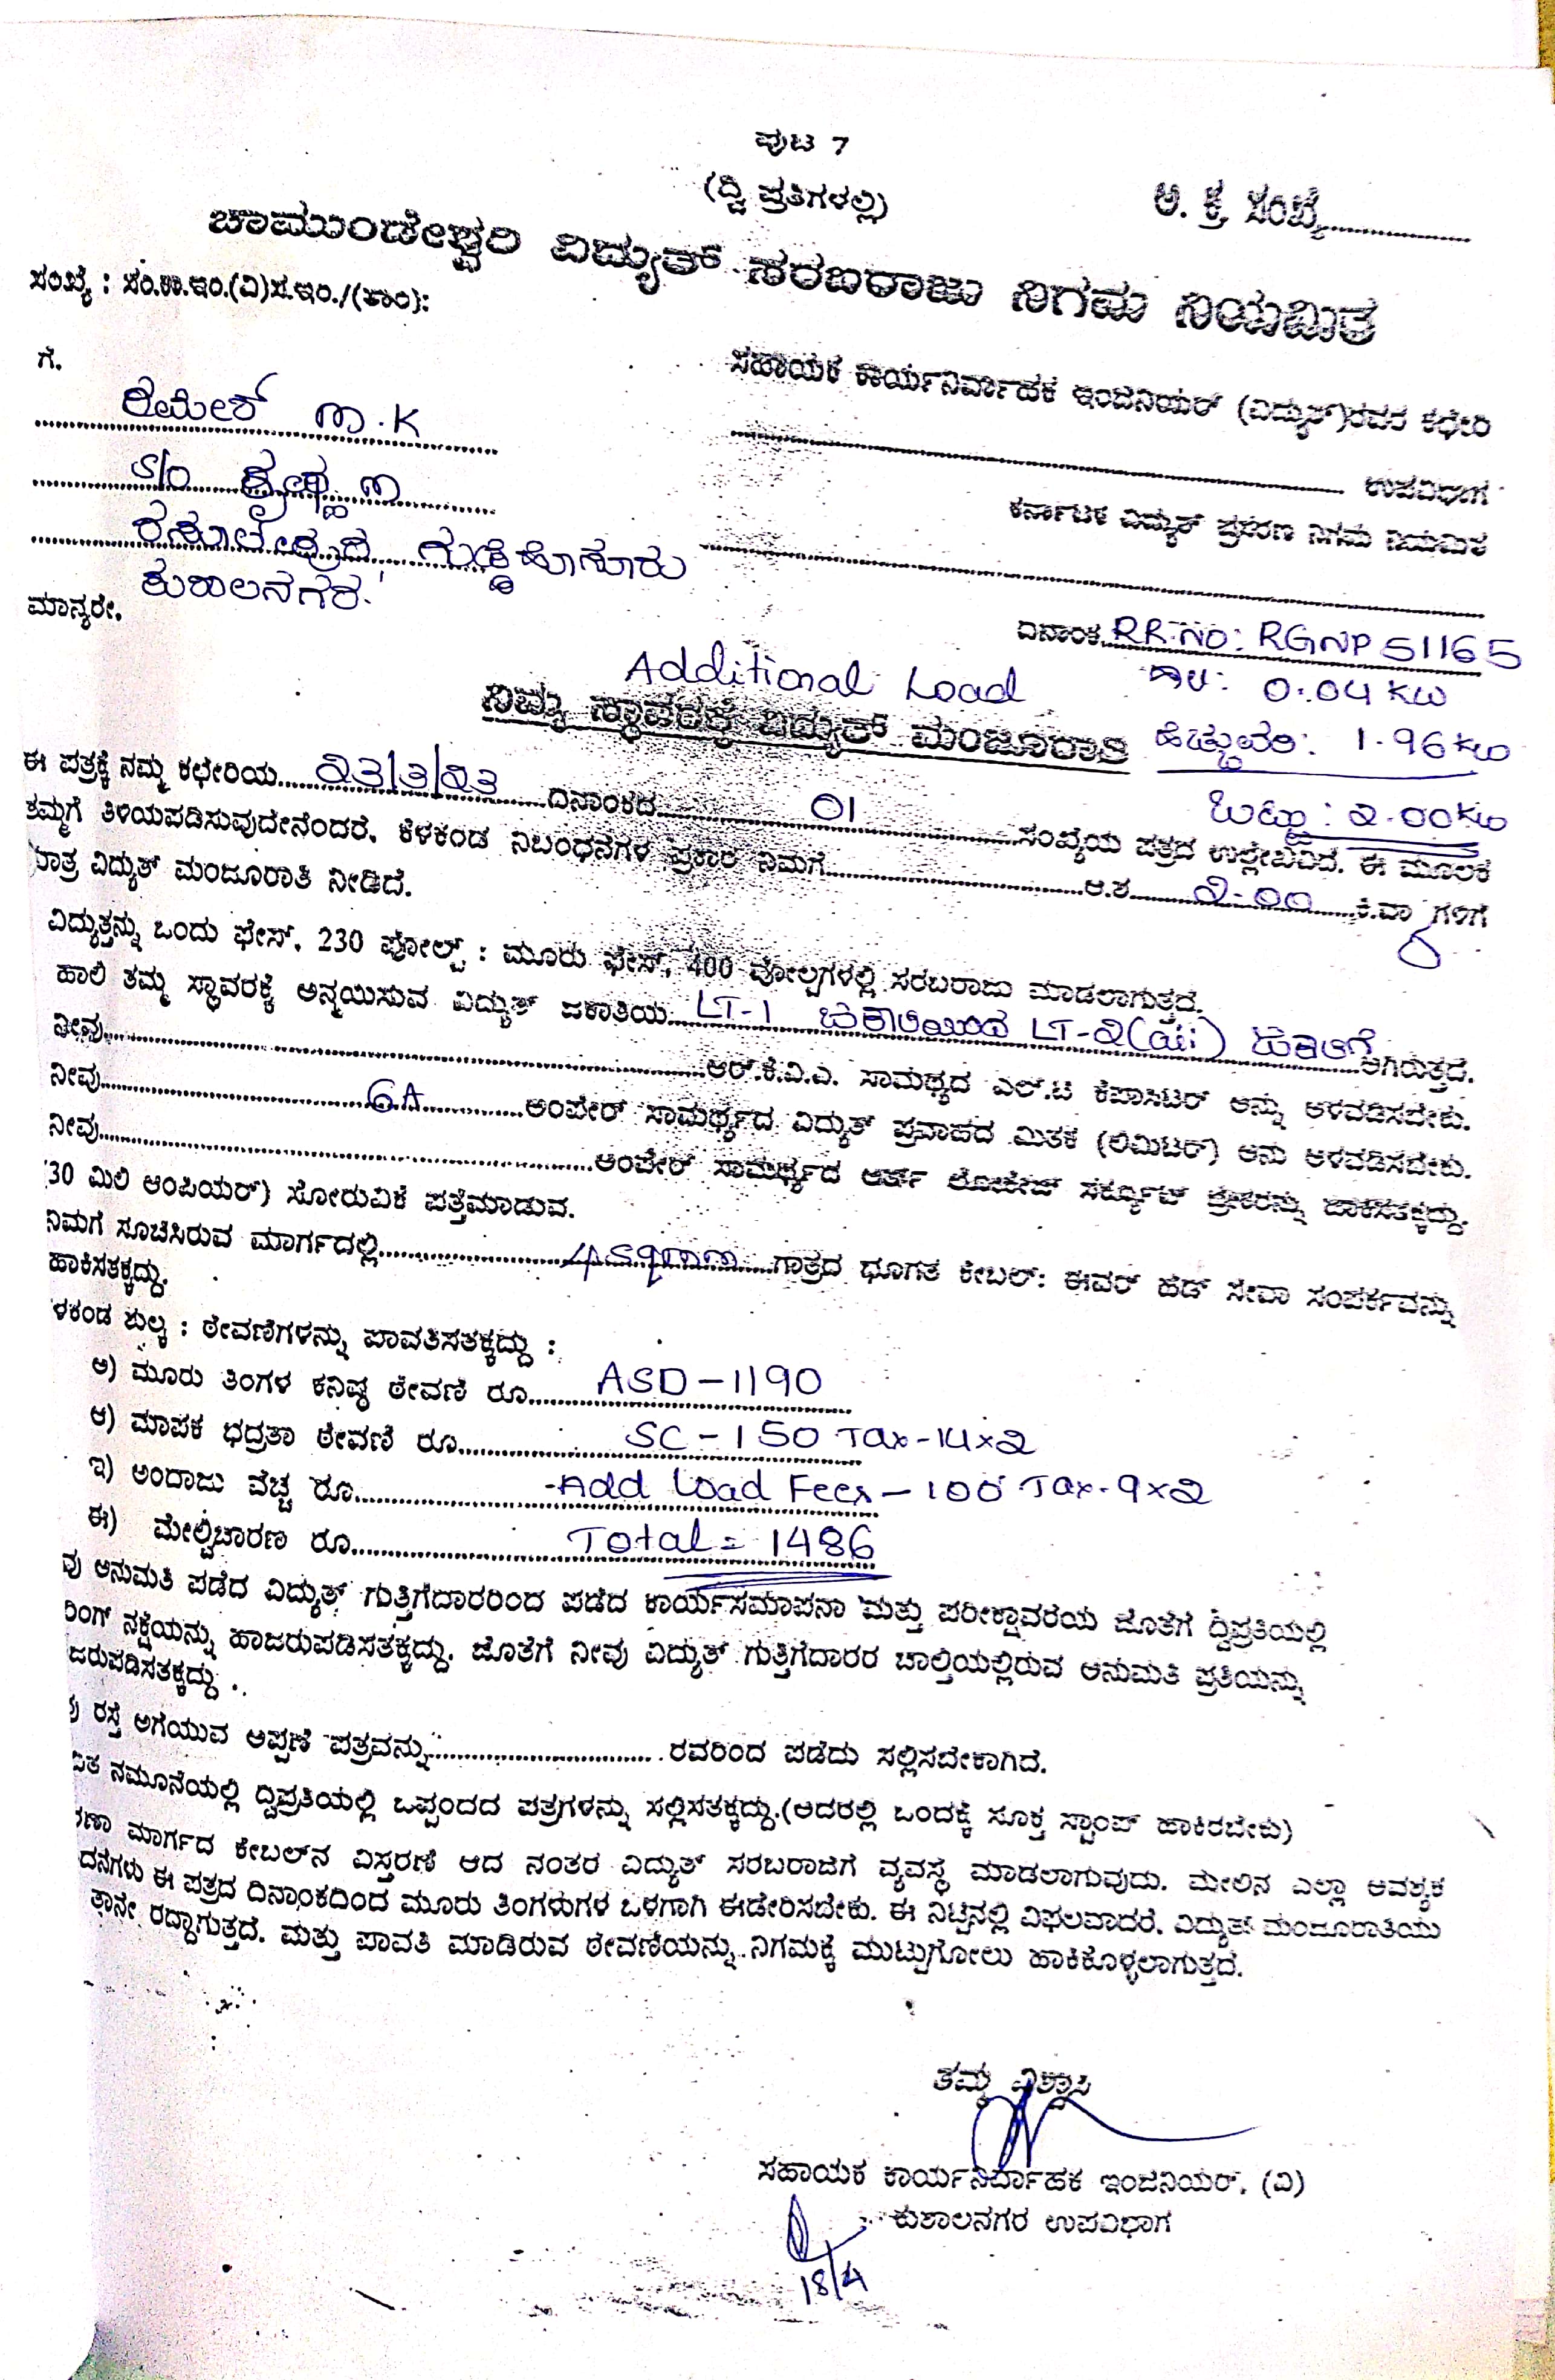 ಪುಟ 7
(ದ್ವಿ ಪ್ರತಿಗಳಲ್ಲಿ)
ಅ. ಕ್ರ. ಸಂಖ್ಯೆ....................
ಚಾಮುಂಡೇಶ್ವರಿ ವಿದ್ಯುತ್ ಸರಬರಾಜು ನಿಗಮ ನಿಯಮಿತ
ಸಂಖ್ಯೆ : ಸಂ.ಕಾ.ಇಂ.(ವಿ)ಸ.ಇಂ./(ಕಾಂ):
ಸಹಾಯಕ ಕಾರ್ಯನಿರ್ವಾಹಕ ಇಂಜಿನಿಯರ್ (ವಿದ್ಯುತ್)ರವರ ಕಛೇರಿ
ಗೆ.
ರಮೇಶ್ M.K
S/O
ಉಪವಿಭಾಗ
ಕರ್ನಾಟಕ ವಿದ್ಯುತ್ ಪ್ರಸರಣ ನಿಗಮ ನಿಯಮಿತ
ಗುಡ್ಡೆಹೊಸೂರು
ಕುಶಾಲನಗರ.
ಮಾನ್ಯರೇ,
ದಿನಾಂಕ RR NO: RGNP 51165
Additional Load
ಹಾಲಿ: 0.04 KW
ನಿಮ್ಮ ಸ್ಥಾವರಕ್ಕೆ ವಿದ್ಯುತ್ ಮಂಜೂರಾತಿ
ಹೆಚ್ಚುವರಿ: 1.96 KW
ಒಟ್ಟು : 2.00 KW
ಈ ಪತ್ರಕ್ಕೆ ನಮ್ಮ ಕಛೇರಿಯ 23/3/23 ದಿನಾಂಕದ 01 ಸಂಖ್ಯೆಯ ಪತ್ರದ ಉಲ್ಲೇಖವಿದೆ. ಈ ಮೂಲಕ
ತಮ್ಮಗೆ ತಿಳಿಯಪಡಿಸುವುದೇನೆಂದರೆ, ಕೆಳಕಂಡ ನಿಬಂಧನೆಗಳ ಪ್ರಕಾರ ನಿಮಗೆ........ಆ.ಶ 2.00 ಕಿ.ವಾ ಗಳಿಗೆ
ಮಾತ್ರ ವಿದ್ಯುತ್ ಮಂಜೂರಾತಿ ನೀಡಿದೆ.
ವಿದ್ಯುತ್ತನ್ನು ಒಂದು ಫೇಸ್, 230 ವೋಲ್ಟ್ : ಮೂರು ಫೇಸ್, 400 ವೋಲ್ಟಗಳಲ್ಲಿ ಸರಬರಾಜು ಮಾಡಲಾಗುತ್ತದೆ.
ಹಾಲಿ ತಮ್ಮ ಸ್ಥಾವರಕ್ಕೆ ಅನ್ವಯಿಸುವ ವಿದ್ಯುತ್ ಜಕಾತಿಯ LT-1 ಜಕಾತಿಯಿಂದ LT-2(aii) ಜಕಾತಿಗೆ ಆಗಿರುತ್ತದೆ.
ನೀವು........ಆರ್.ಕೆ.ವಿ.ಎ. ಸಾಮರ್ಥ್ಯದ ಎಲ್.ಟಿ ಕೆಪಾಸಿಟರ್ ಅನ್ನು ಅಳವಡಿಸಬೇಕು.
ನೀವು 6A ಅಂಪೇರ್ ಸಾಮರ್ಥ್ಯದ ವಿದ್ಯುತ್ ಪ್ರವಾಹದ ಮಿತಕ (ಲಿಮಿಟರ್) ಅನು ಅಳವಡಿಸಬೇಕು.
ನೀವು........ಅಂಪೇರ್ ಸಾಮರ್ಥ್ಯದ ಅರ್ತ್ ಲೀಕೇಜ್ ಸರ್ಕ್ಯೂಟ್ ಬ್ರೇಕರನ್ನು ಹಾಕಿಸತಕ್ಕದ್ದು.
(30 ಮಿಲಿ ಆಂಪಿಯರ್) ಸೋರುವಿಕೆ ಪತ್ತೆಮಾಡುವ.
ನಿಮಗೆ ಸೂಚಿಸಿರುವ ಮಾರ್ಗದಲ್ಲಿ 4sqmm ಗಾತ್ರದ ಭೂಗತ ಕೇಬಲ್: ಈವರ್ ಹೆಡ್ ಸೇವಾ ಸಂಪರ್ಕವನ್ನು
ಹಾಕಿಸತಕ್ಕದ್ದು.
ಳಕಂಡ ಶುಲ್ಕ : ಠೇವಣಿಗಳನ್ನು ಪಾವತಿಸತಕ್ಕದ್ದು :
ಅ) ಮೂರು ತಿಂಗಳ ಕನಿಷ್ಠ ಠೇವಣಿ ರೂ. ASD - 1190
ಆ) ಮಾಪಕ ಭದ್ರತಾ ಠೇವಣಿ ರೂ. SC - 150 Tax-14x2
ಇ) ಅಂದಾಜು ವೆಚ್ಚ ರೂ. Add Load Fees - 100 Tax-9x2
ಈ) ಮೇಲ್ವಿಚಾರಣ ರೂ. Total = 1486
ವು ಅನುಮತಿ ಪಡೆದ ವಿದ್ಯುತ್ ಗುತ್ತಿಗೆದಾರರಿಂದ ಪಡೆದ ಕಾರ್ಯಸಮಾಪನಾ ಮತ್ತು ಪರೀಕ್ಷಾವರೆಯ ಜೊತೆಗೆ ದ್ವಿಪ್ರತಿಯಲ್ಲಿ
ರಿಂಗ್ ನಕ್ಷೆಯನ್ನು ಹಾಜರುಪಡಿಸತಕ್ಕದ್ದು. ಜೊತೆಗೆ ನೀವು ವಿದ್ಯುತ್ ಗುತ್ತಿಗೆದಾರರ ಚಾಲ್ತಿಯಲ್ಲಿರುವ ಅನುಮತಿ ಪ್ರತಿಯನ್ನು
ಜರುಪಡಿಸತಕ್ಕದ್ದು .
ರಸ್ತೆ ಅಗೆಯುವ ಅಪ್ಪಣೆ ಪತ್ರವನ್ನು........ರವರಿಂದ ಪಡೆದು ಸಲ್ಲಿಸಬೇಕಾಗಿದೆ.
ನಮೂನೆಯಲ್ಲಿ ದ್ವಿಪ್ರತಿಯಲ್ಲಿ ಒಪ್ಪಂದದ ಪತ್ರಗಳನ್ನು ಸಲ್ಲಿಸತಕ್ಕದ್ದು.(ಅದರಲ್ಲಿ ಒಂದಕ್ಕೆ ಸೂಕ್ತ ಸ್ಟಾಂಪ್ ಹಾಕಿರಬೇಕು)
ಮಾರ್ಗದ ಕೇಬಲ್‌ನ ವಿಸ್ತರಣೆ ಆದ ನಂತರ ವಿದ್ಯುತ್ ಸರಬರಾಜಿಗೆ ವ್ಯವಸ್ಥೆ ಮಾಡಲಾಗುವುದು. ಮೇಲಿನ ಎಲ್ಲಾ ಅವಶ್ಯಕ
ದನೆಗಳು ಈ ಪತ್ರದ ದಿನಾಂಕದಿಂದ ಮೂರು ತಿಂಗಳುಗಳ ಒಳಗಾಗಿ ಈಡೇರಿಸಬೇಕು. ಈ ನಿಟ್ಟಿನಲ್ಲಿ ವಿಫಲವಾದರೆ, ವಿದ್ಯುತ್ ಮಂಜೂರಾತಿಯು
ತಾನೇ ರದ್ದಾಗುತ್ತದೆ. ಮತ್ತು ಪಾವತಿ ಮಾಡಿರುವ ಠೇವಣಿಯನ್ನು ನಿಗಮಕ್ಕೆ ಮುಟ್ಟುಗೋಲು ಹಾಕಿಕೊಳ್ಳಲಾಗುತ್ತದೆ.
ತಮ್ಮ ವಿಶ್ವಾಸಿ
ಸಹಾಯಕ ಕಾರ್ಯನಿರ್ವಾಹಕ ಇಂಜಿನಿಯರ್, (ವಿ)
ಕುಶಾಲನಗರ ಉಪವಿಭಾಗ
18/4